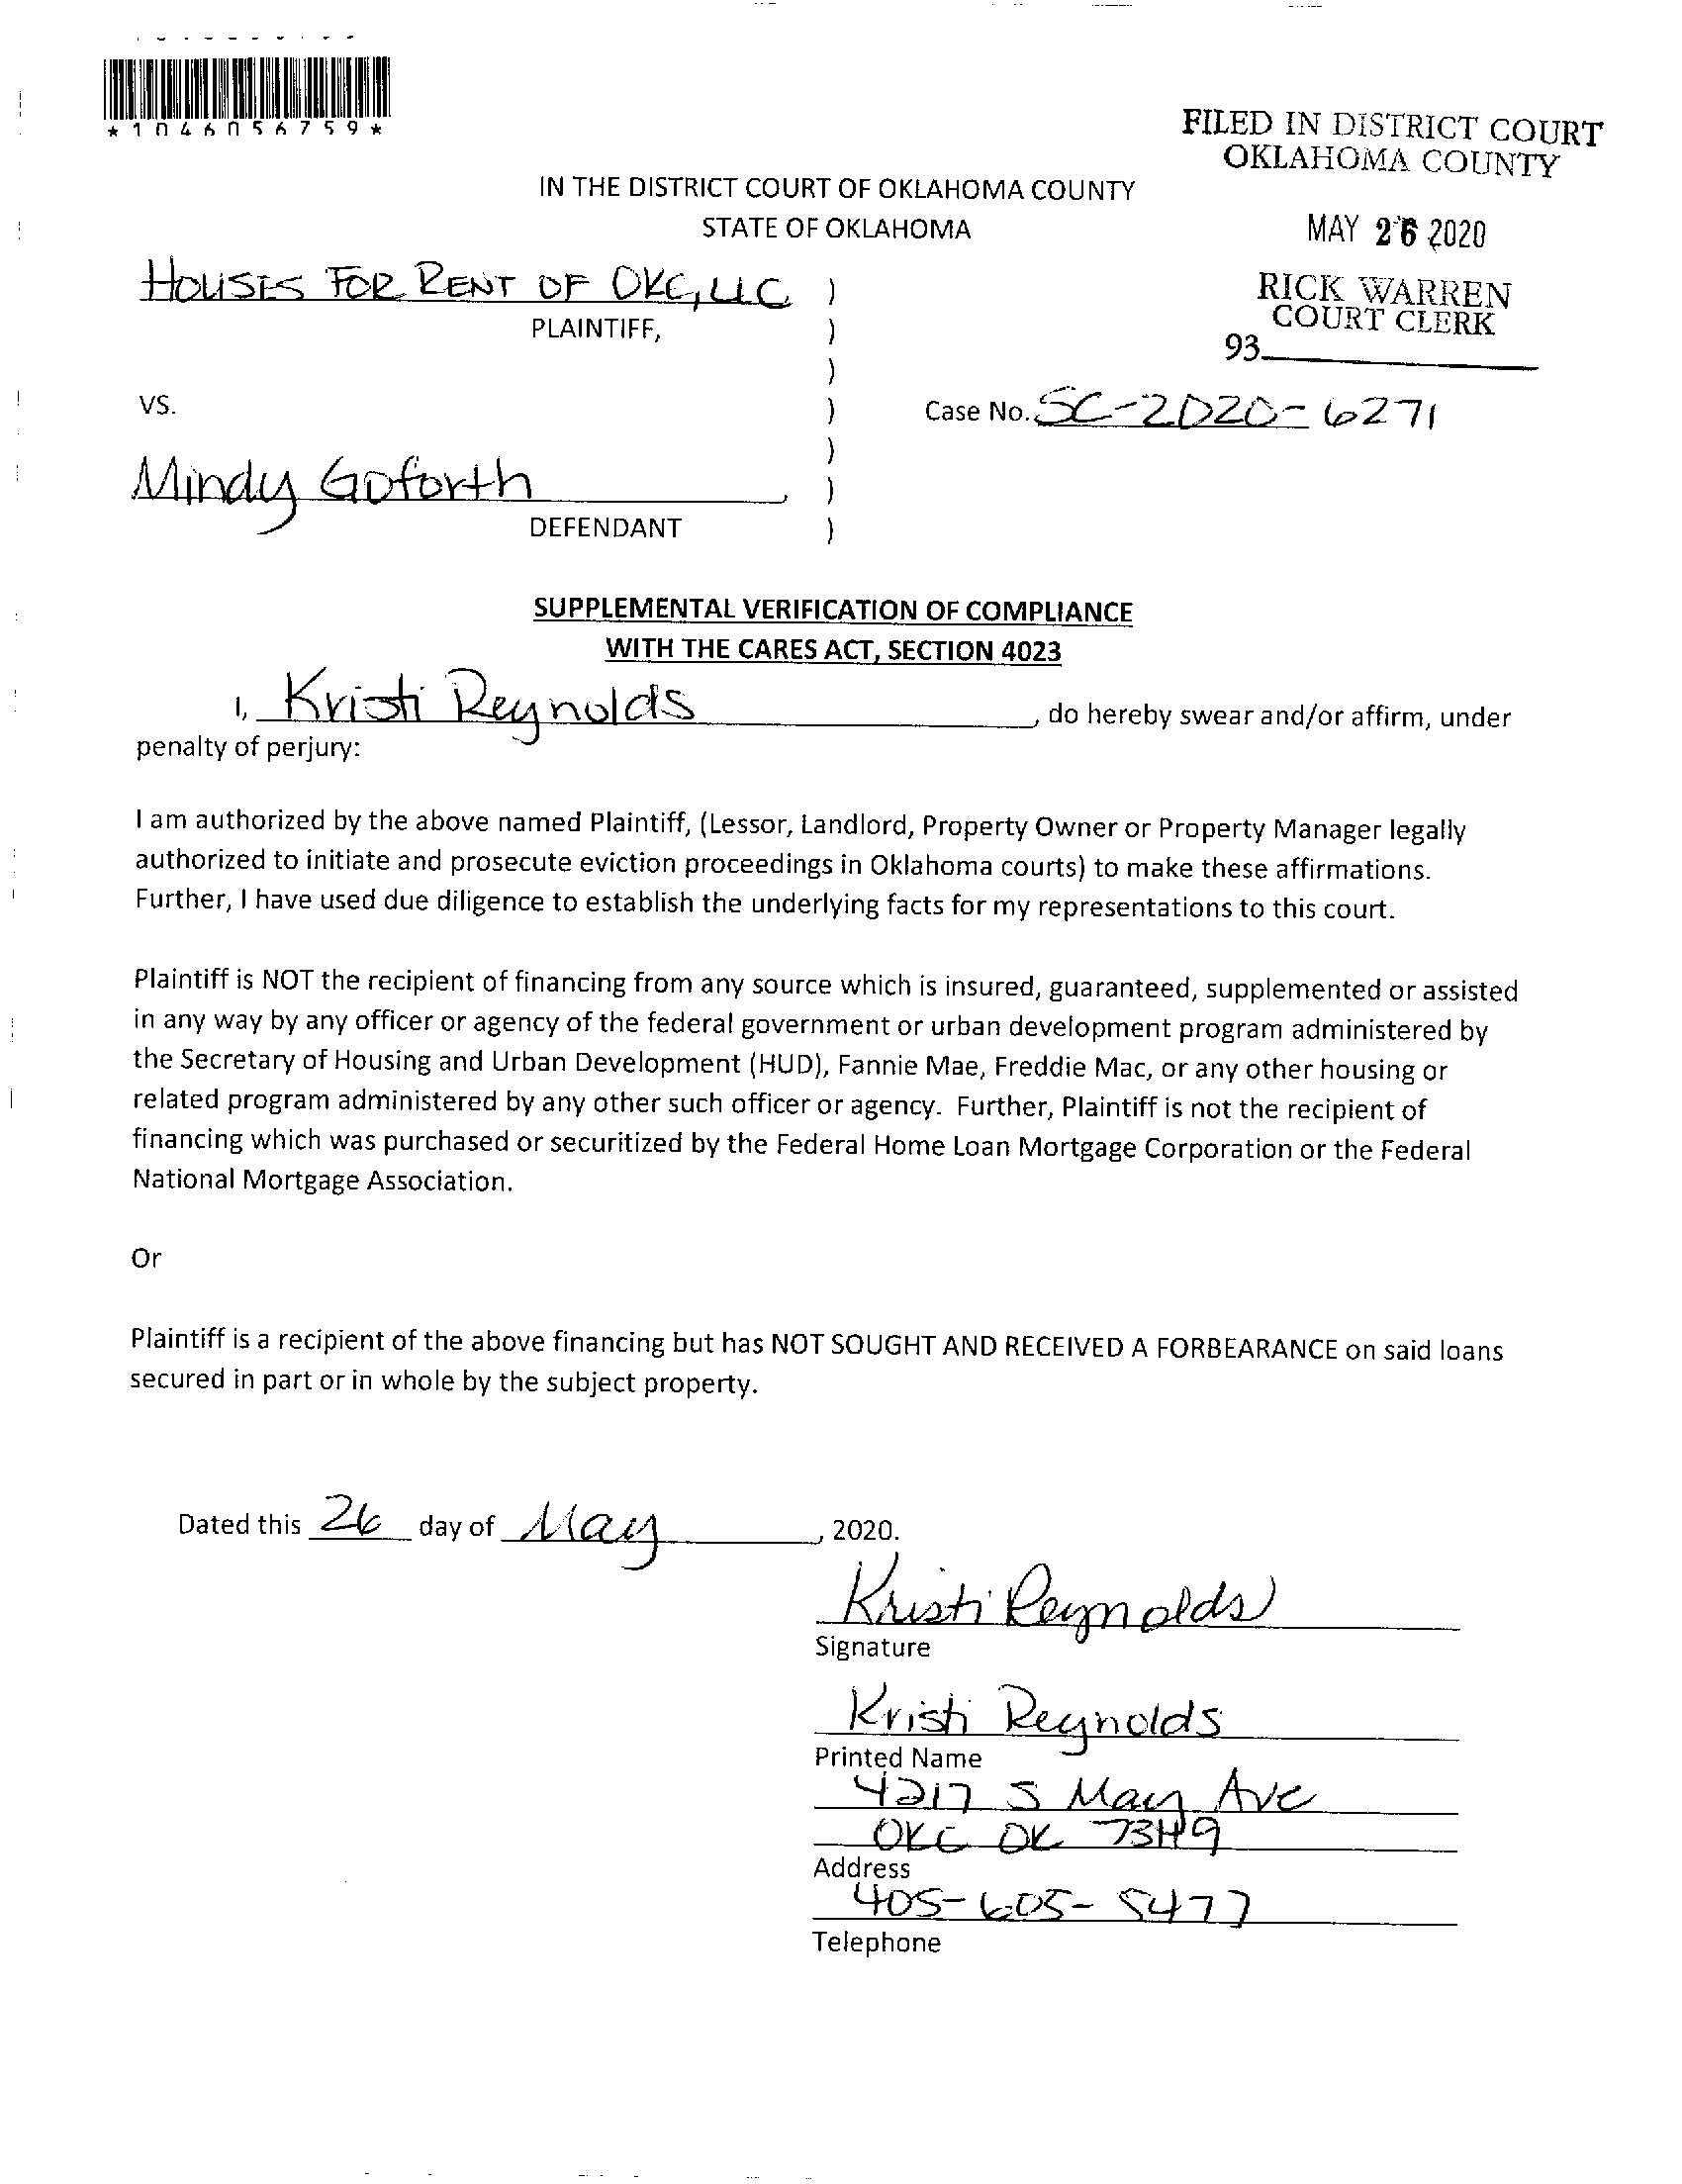 *1046056759*
FILED IN DISTRICT COURT
OKLAHOMA COUNTY
MAY 26 2020
RICK WARREN
COURT CLERK
93
IN THE DISTRICT COURT OF OKLAHOMA COUNTY
STATE OF OKLAHOMA
HOUSES FOR RENT OF OKC, LLC )
PLAINTIFF, )
)
VS. ) Case No. SC-2020-6271
)
Mindy Goforth , )
DEFENDANT )
SUPPLEMENTAL VERIFICATION OF COMPLIANCE
WITH THE CARES ACT, SECTION 4023
I, Kristi Reynolds, do hereby swear and/or affirm, under
penalty of perjury:
I am authorized by the above named Plaintiff, (Lessor, Landlord, Property Owner or Property Manager legally
authorized to initiate and prosecute eviction proceedings in Oklahoma courts) to make these affirmations.
Further, I have used due diligence to establish the underlying facts for my representations to this court.
Plaintiff is NOT the recipient of financing from any source which is insured, guaranteed, supplemented or assisted
in any way by any officer or agency of the federal government or urban development program administered by
the Secretary of Housing and Urban Development (HUD), Fannie Mae, Freddie Mac, or any other housing or
related program administered by any other such officer or agency. Further, Plaintiff is not the recipient of
financing which was purchased or securitized by the Federal Home Loan Mortgage Corporation or the Federal
National Mortgage Association.
Or
Plaintiff is a recipient of the above financing but has NOT SOUGHT AND RECEIVED A FORBEARANCE on said loans
secured in part or in whole by the subject property.
Dated this 26 day of May, 2020.
Kristi Reynolds
Signature
Kristi Reynolds
Printed Name
4217 S May Ave
OKC OK 73119
Address
405-605-5477
Telephone